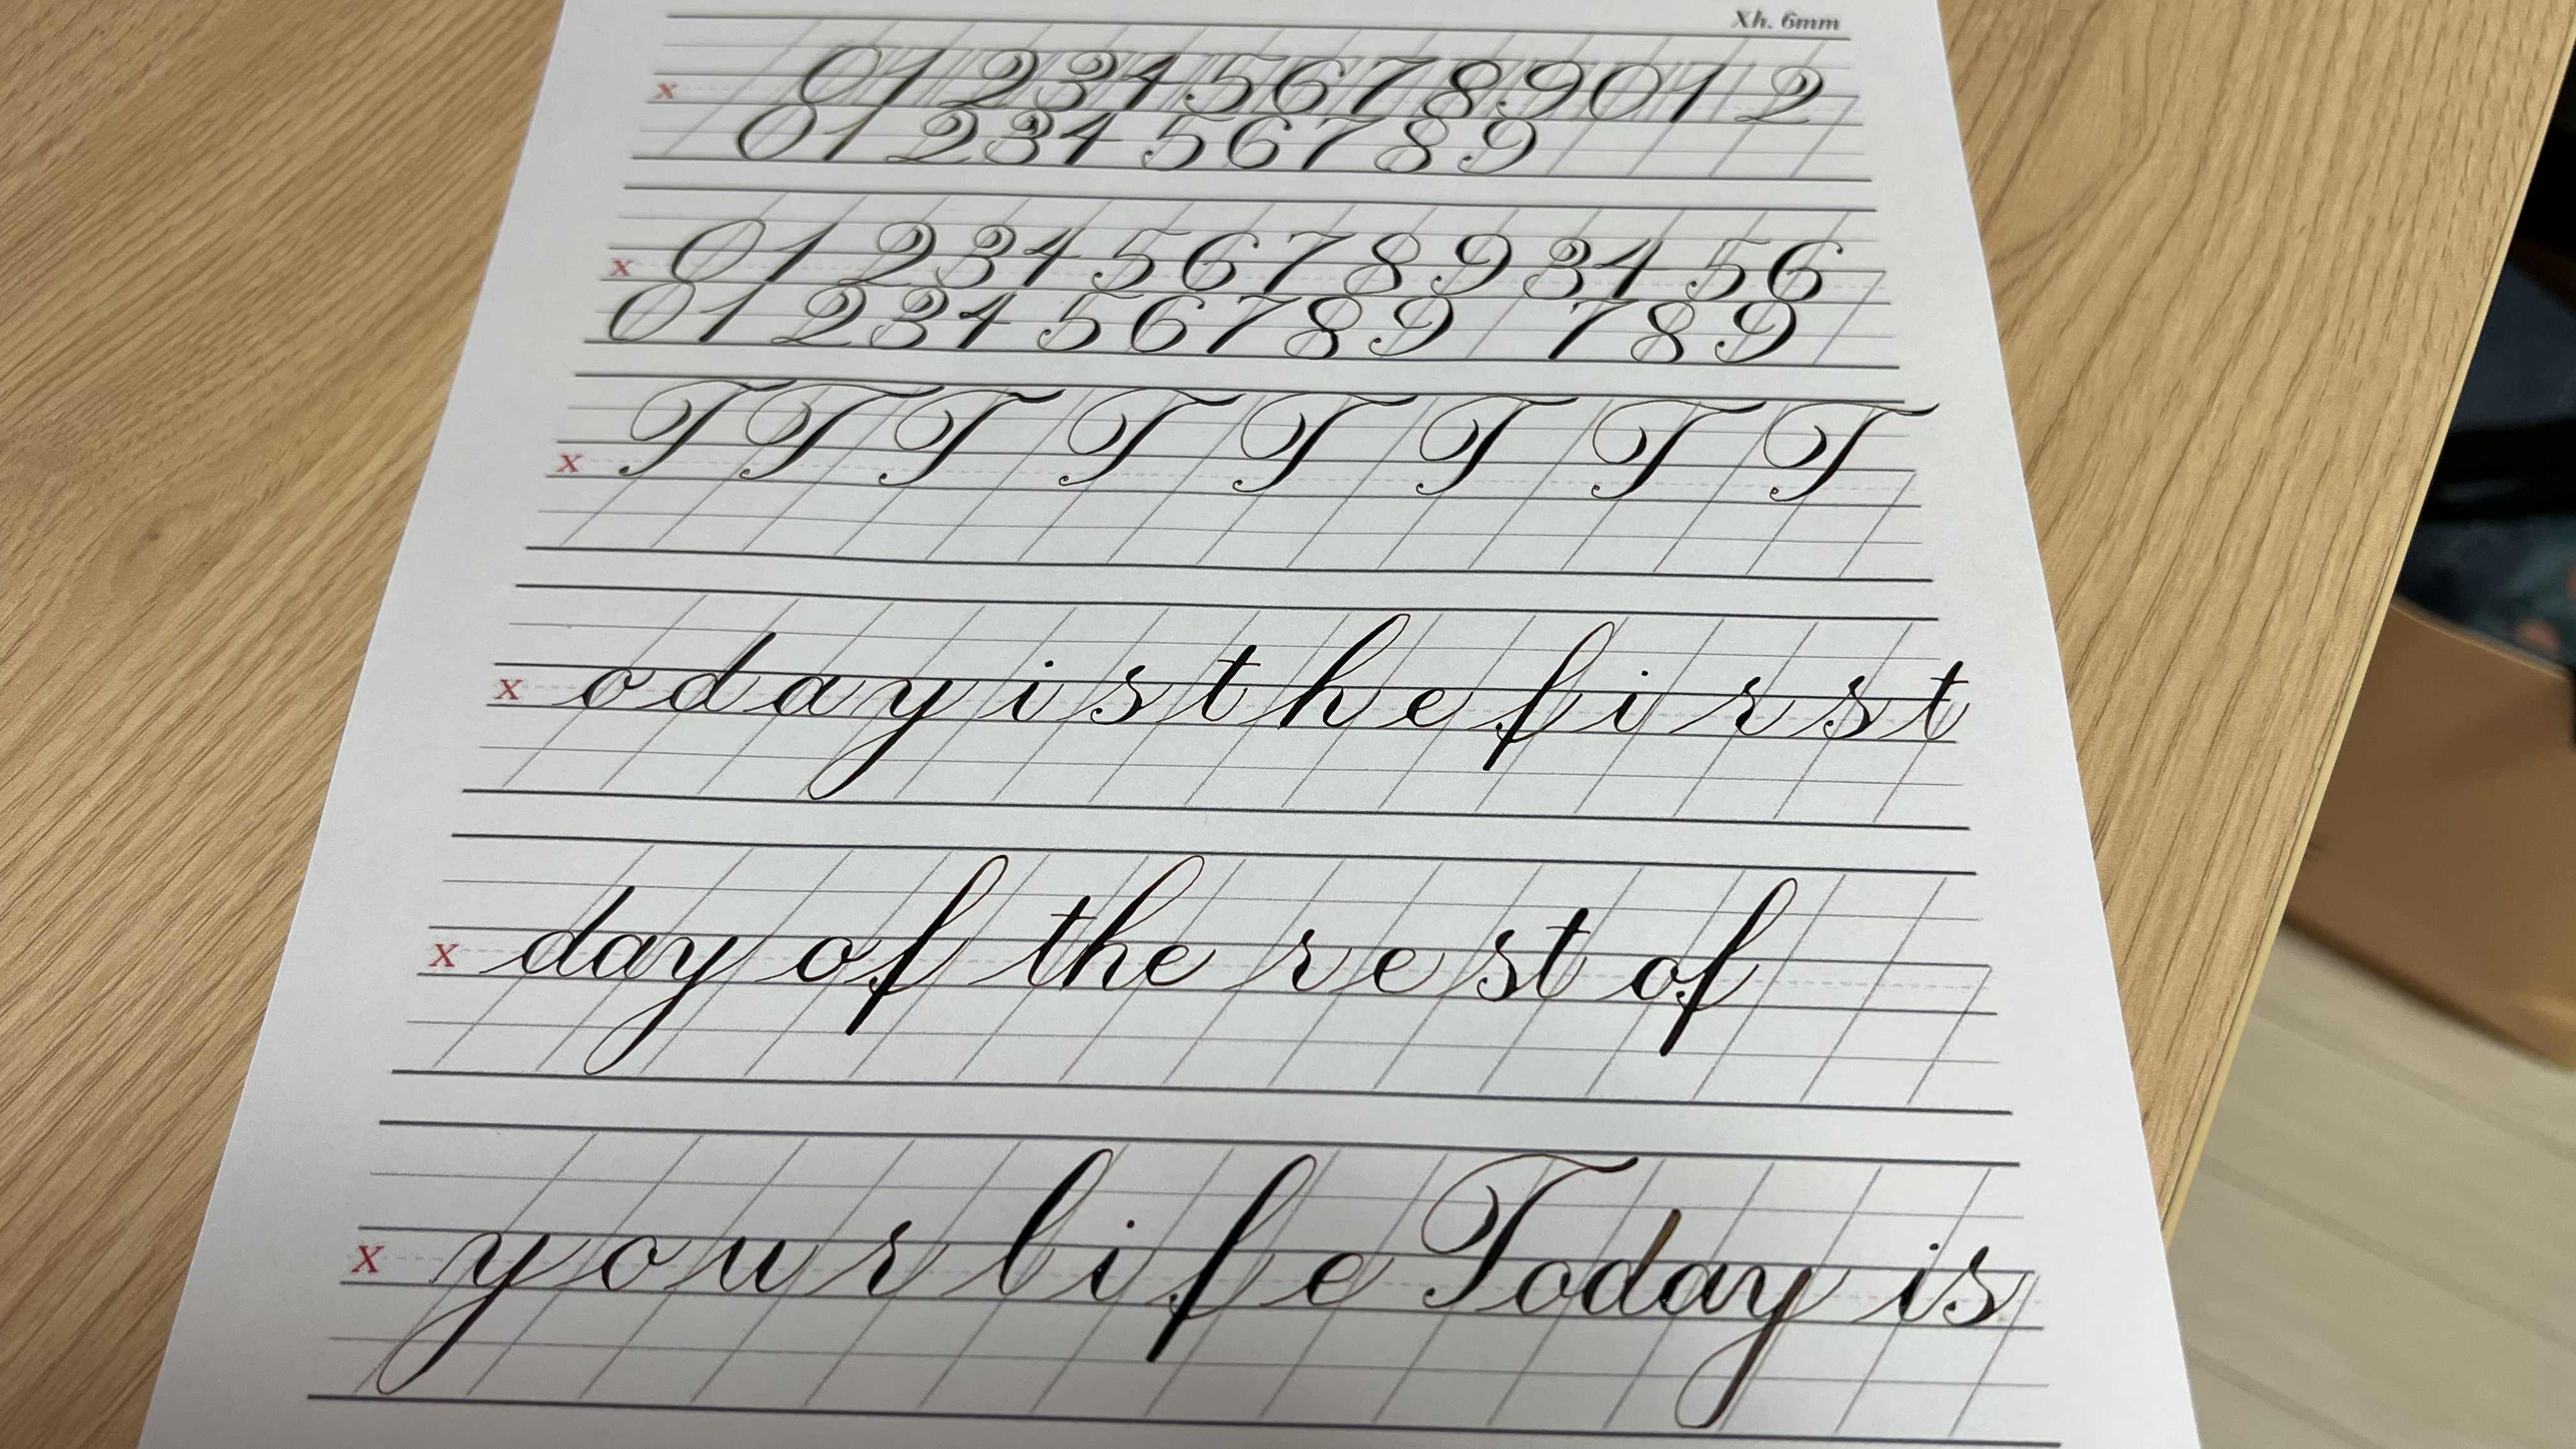 Xh. 6mm
x 0 1 2 3 4 5 6 7 8 9 0 1 2
0 1 2 3 4 5 6 7 8 9
x 0 1 2 3 4 5 6 7 8 9 3 4 5 6
0 1 2 3 4 5 6 7 8 9 7 8 9
x T T T T T T T T
x oday is the first
x day of the rest of
x your life Today is